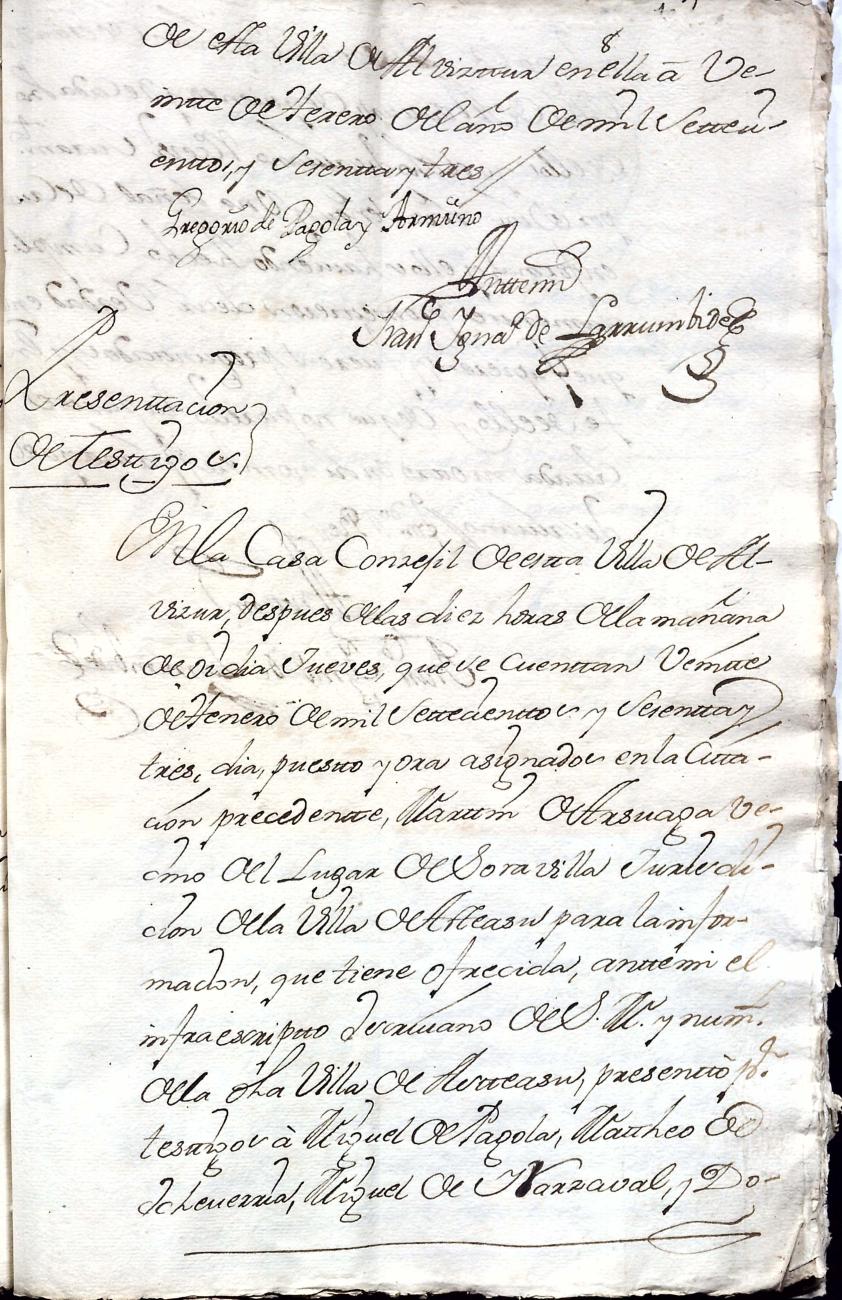 de esta Villa de Alvizttur en ella â Ve-
intte de Henero del año de mil settecí-
enttos, y sesentta y tres
Gregorio de Pagola y Ormuño
Antte mi
Franco Ignao de Larrumbide
Presenttacion
de Testtigos.
En la Casa Consejil de estta Villa de Al-
vizur, despues de las diez horas de la mañana
de oi dia Jueves, que se cuenttan Veintte
de Henero de mil settecienttos y sesentta y
tres, dia, puestto y ora asignados en la Citta-
cion precedentte, Marttin de Arsuaga ve-
cino del Lugar de Soravilla Jurisdi-
cion de la Villa de Atteasu para la infor-
macion, que tiene ofrecida, antte mi el
infraescriptto Escrivano de S. M. y num.
de la dha Villa de Asteasu, presenttò pr.
testtigos à Miguel de Pagola, Mattheo de
Echeverria, Miguel de Narzaval, y Do-